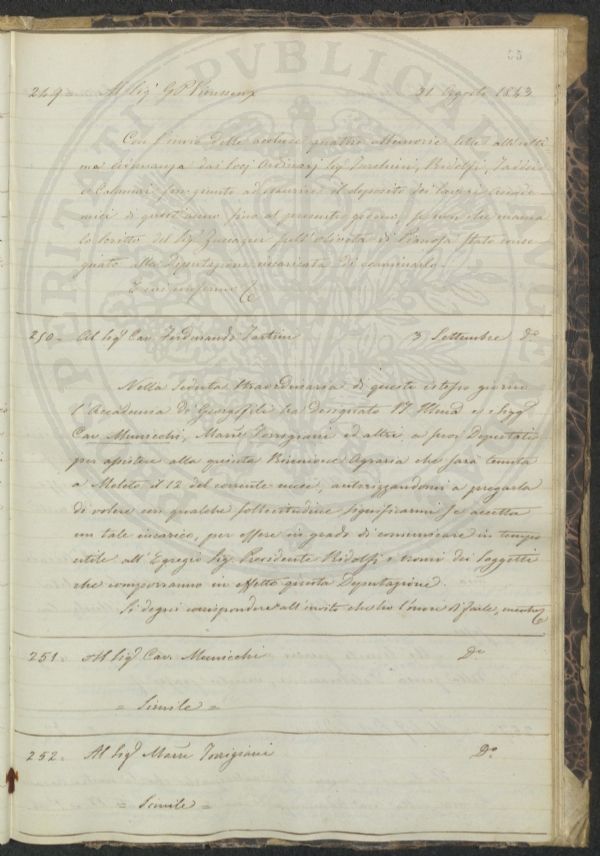 55
249. Al Sigr. G. P. Vieusseux 31 Agosto 1843
Con l'invio delle accluse quattro Memorie lette all'ulti
ma Adunanza dai Socj Ordinarj Sigg. Ridolfi, Taddei
e Calamai, son giunto ad esaurire il deposito dei lavori accade
mici di quest'anno fino al presente giorno, se non che manca
lo scritto del Sigr. Zuccagni sull' di Pianosa stato conse
gnato alla Deputazione incaricata di esaminarlo.
E mi confermo &c
250. Al Sigr. Cav. Ferdinando Tartini 3 Settembre do.
Nella Seduta straordinaria di questo istesso giorno
l'Accademia de' Georgofili ha designato V.S. Illma. e i Sigg.
Cav. Municchi, Marse. Torrigiani ed altri, a suoi Deputati
per assistere alla quinta Riunione Agraria che sarà tenuta
a Meleto il 12 del corrente mese, autorizzandomi a pregarla
di volere con qualche sollecitudine significarmi se accetta
un tale incarico, per essere in grado di comunicare in tempo
utile all'Egregio Sig. Presidente Ridolfi i nomi dei Soggetti
che comporranno in effetto questa Deputazione.
Si degni corrispondere all'invito che ho l'onore di farle, mentre &c
251. Al Sigr. Cav. Municchi Do.
= Simile =
252. Al Sigr. Marse. Torrigiani Do.
= Simile =
PERITATI PVBLICAE